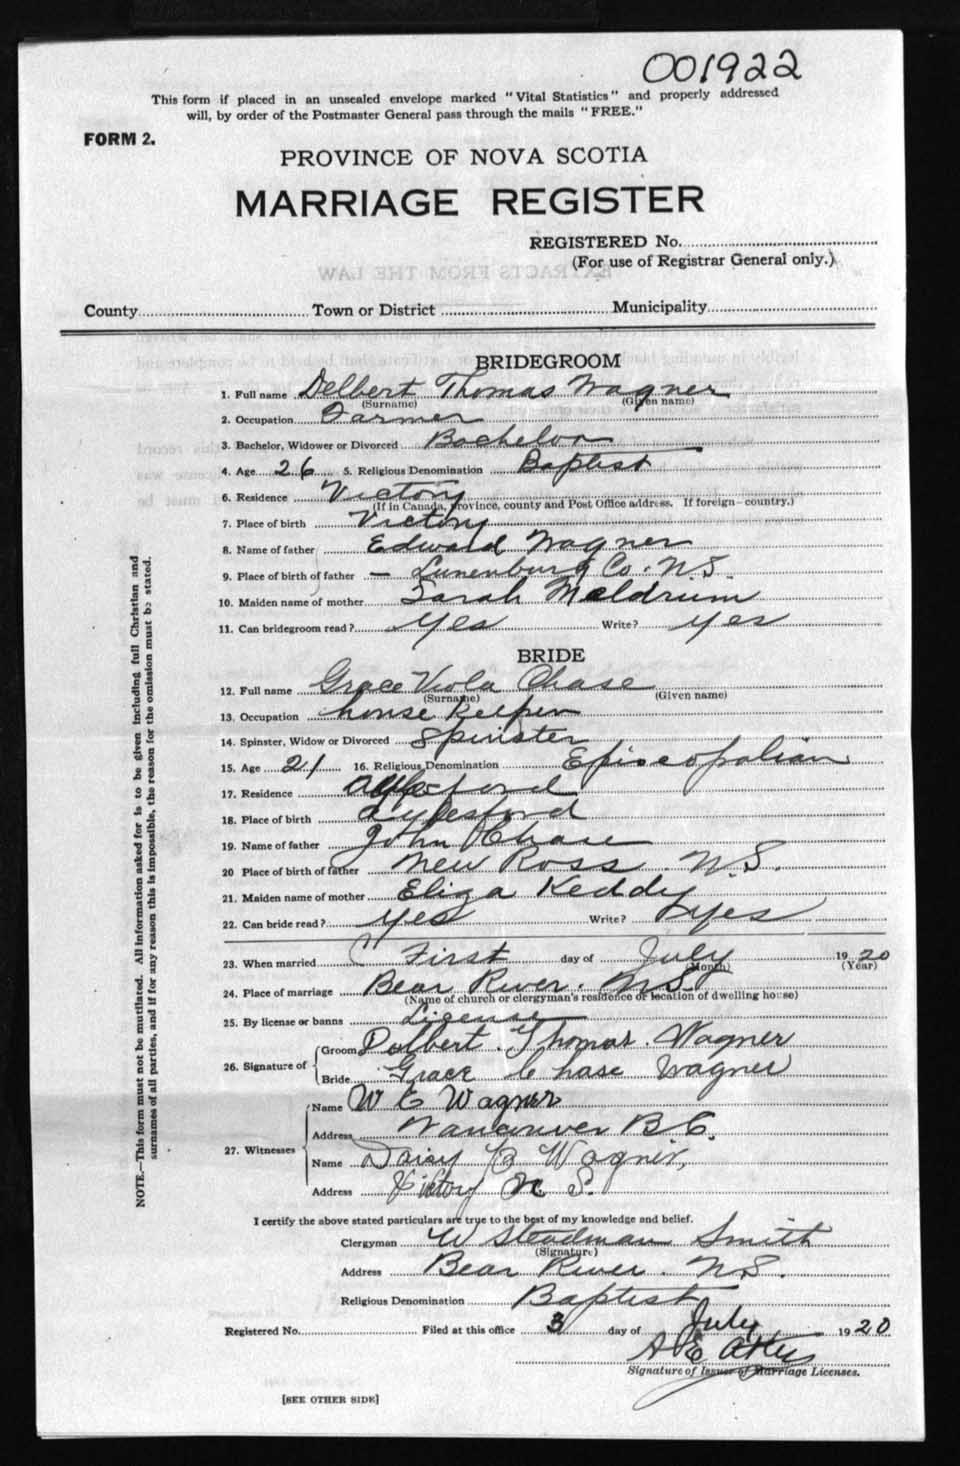 001922
This form if placed in an unsealed envelope marked "Vital Statistics" and properly addressed
will, by order of the Postmaster General pass through the mails "FREE."
FORM 2.
PROVINCE OF NOVA SCOTIA
MARRIAGE REGISTER
REGISTERED No.
(For use of Registrar General only.)
EXTRACTS FROM THE LAW
County Town or District Municipality
BRIDEGROOM
1. Full name Delbert Thomas Wagner
(Surname) (Given name)
2. Occupation Farmer
3. Bachelor, Widower or Divorced Bachelor
4. Age 26 5. Religious Denomination Baptist
6. Residence Victory
(If in Canada, province, county and Post Office address. If foreign—country.)
7. Place of birth Victory
8. Name of father Edward Wagner
9. Place of birth of father — Lunenburg Co. N.S.
10. Maiden name of mother Sarah Meldrum
11. Can bridegroom read? Yes Write? Yes
BRIDE
12. Full name Grace Viola Chase
(Surname) (Given name)
13. Occupation house Keeper
14. Spinster, Widow or Divorced Spinster
15. Age 21 16. Religious Denomination Episcopalian
17. Residence
18. Place of birth Aylesford
19. Name of father John Chase
20 Place of birth of father New Ross N.S.
21. Maiden name of mother Eliza Keddy
22. Can bride read? Yes Write? Yes
23. When married First day of July 1920
(Month) (Year)
24. Place of marriage Bear River. N.S.
(Name of church or clergyman's residence or location of dwelling house)
25. By license or banns License
26. Signature of Groom Delbert. Thomas. Wagner
Bride Grace Chase Wagner
27. Witnesses Name W E Wagner
Address Vancouver B.C.
Name Daisy B Wagner,
Address Victory N S.
I certify the above stated particulars are true to the best of my knowledge and belief.
Clergyman W Steadman Smith
(Signature)
Address Bear River. N.S.
Religious Denomination Baptist
Registered No. Filed at this office 3 day of July 1920
A E
Signature of Issuer of Marriage Licenses.
[SEE OTHER SIDE]
NOTE.—This form must not be mutilated. All information asked for is to be given including full Christian and
surnames of all parties, and if for any reason this is impossible, the reason for the omission must be stated.